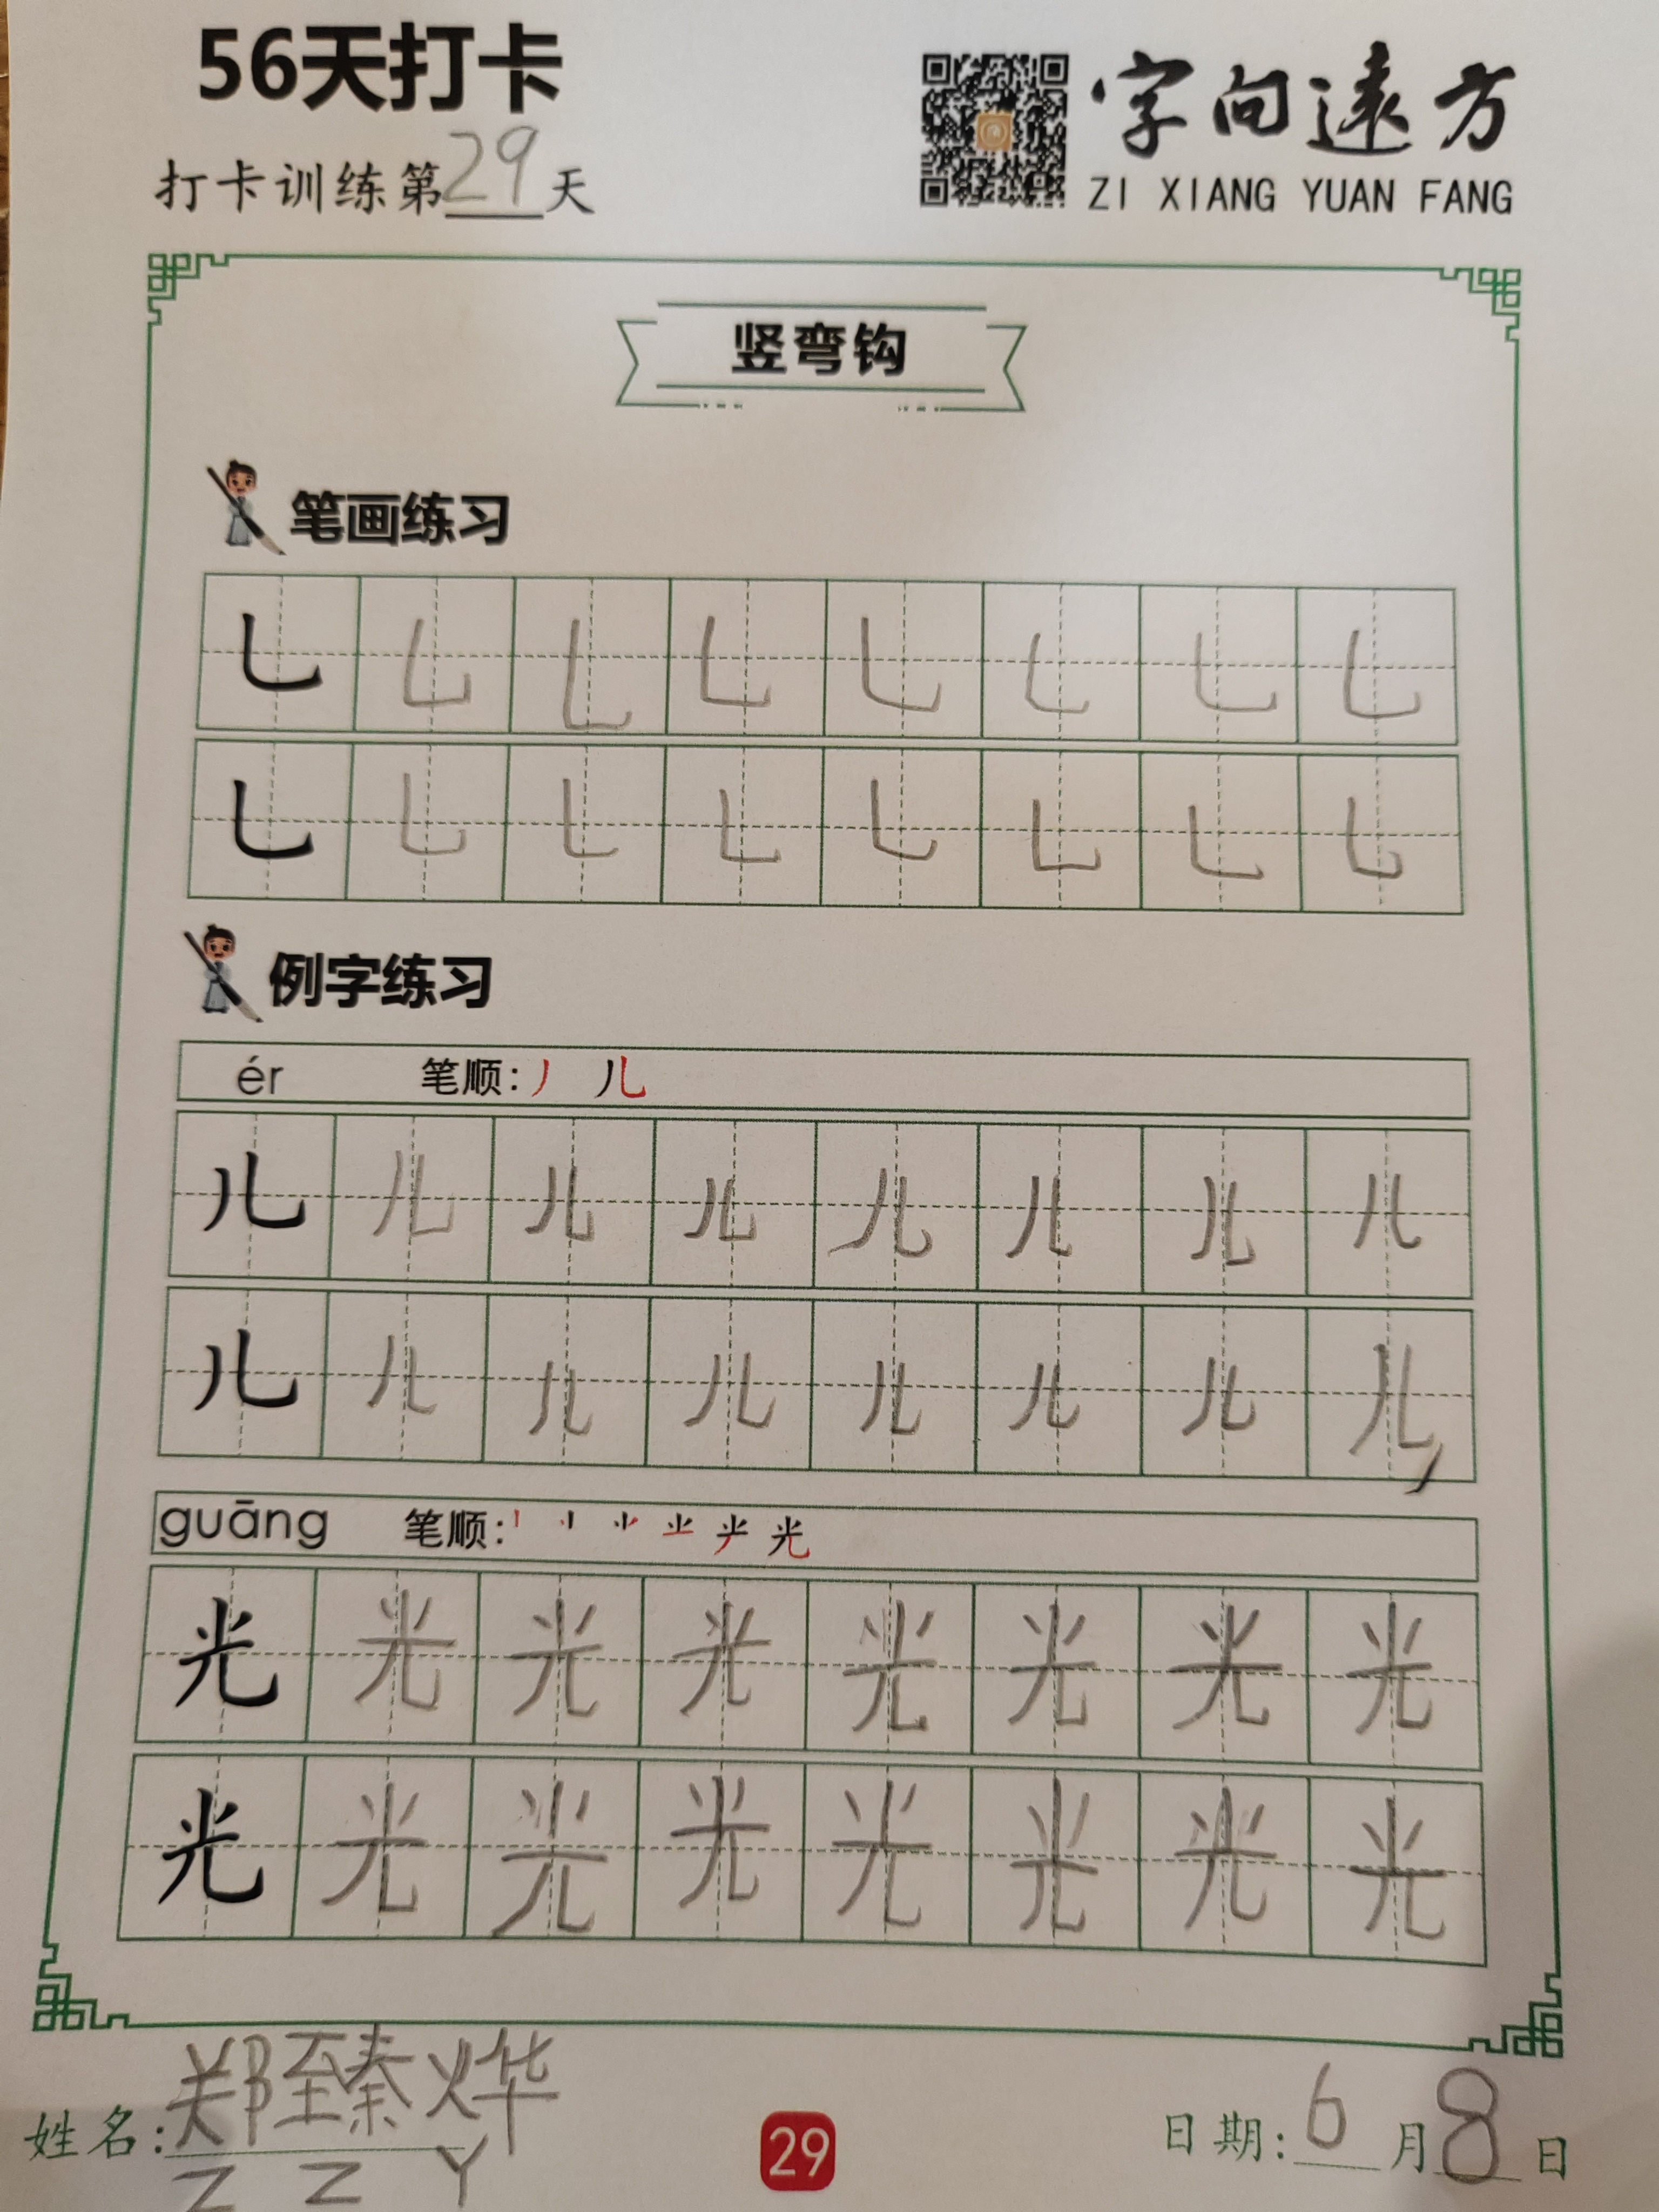 56天打卡
字向遠方
打卡训练第29天
ZI XIANG YUAN FANG
竖弯钩
笔画练习
乚 乚 乚 乚 乚 乚 乚 乚
乚 乚 乚 乚 乚 乚 乚 乚
例字练习
ér 笔顺: 丿 儿
儿 儿 儿 儿 儿 儿 儿 儿
儿 儿 儿 儿 儿 儿 儿 儿
guāng 笔顺: 光
光 光 光 光 光 光 光 光
光 光 光 光 光 光 光 光
姓名: 郑臻烨
日期: 6月8日
Z Z Y
29